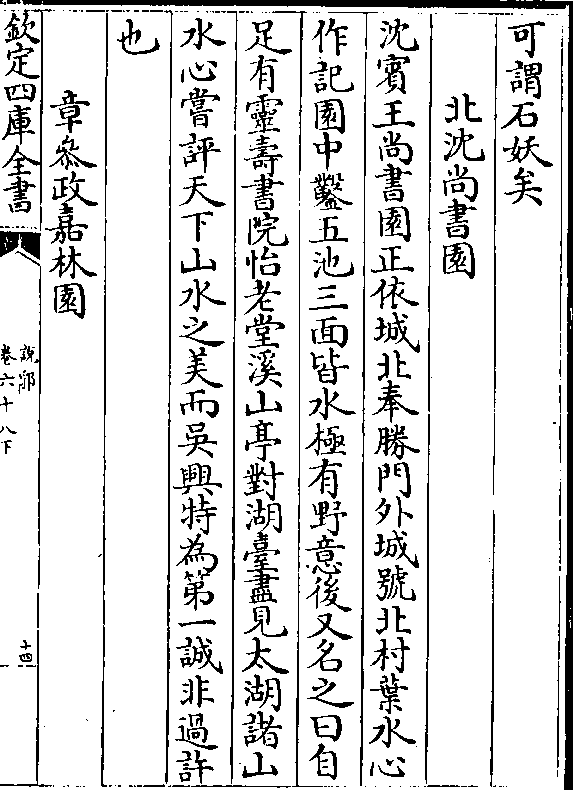 可謂石妖矣
北沈尚書園
沈賓王尚書園正依城北奉勝門外城號北村葉水心
作記園中鑿五池三面皆水極有野意後又名之曰自
足有靈壽書院怡老堂溪山亭對湖臺盡見太湖諸山
水心嘗評天下山水之美而吳興特為第一誠非過許
也
章叅政嘉林園
欽定四庫全書
說郛
卷六十八下
十四